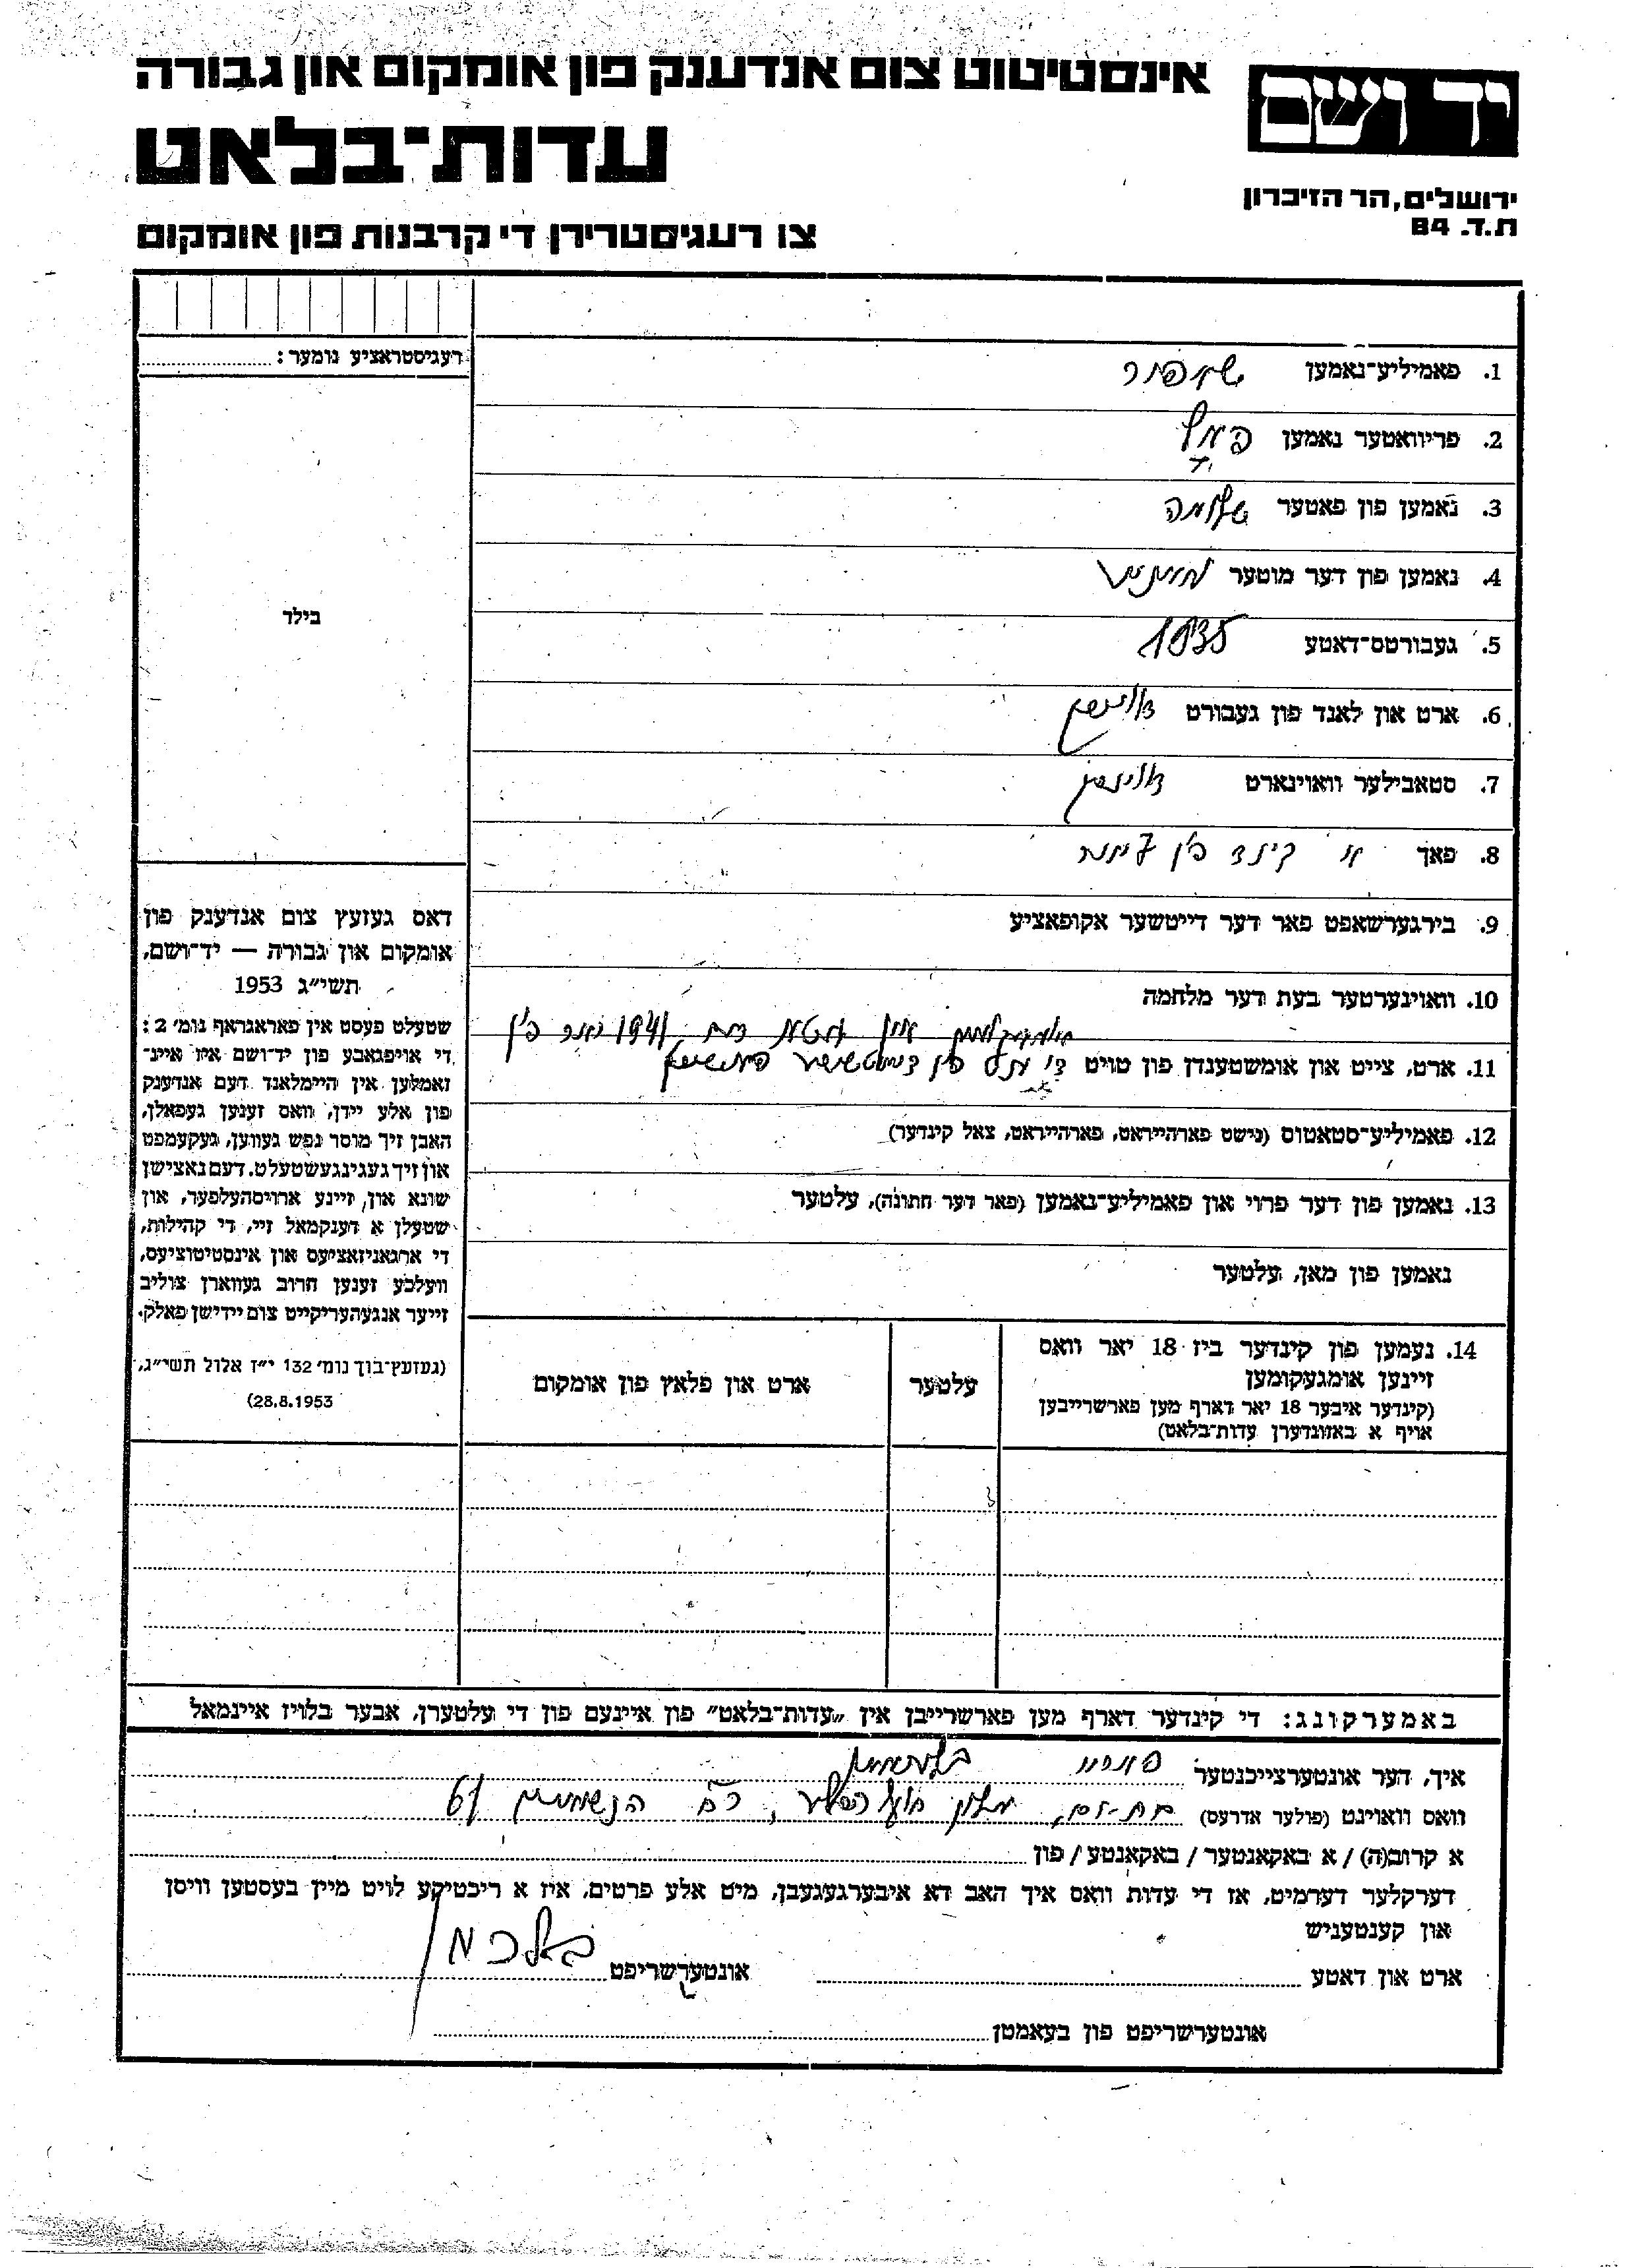 אינסטיטוט צום אנדענק פון אומקום און גבורה
יד ושם
עדות־בלאט
ירושלים, הר הזיכרון
ת.ד. 84
צו רעגיסטרירן די קרבנות פון אומקום
רעגיסטראציע נומער:
בילד
דאס געזעץ צום אנדענק פון
אומקום און גבורה — יד־ושם,
תשי״ג 1953
שטעלט פעסט אין פאראגראף נומ׳ 2:
די אויפגאבע פון יד־ושם איז איינ־
זאמלען אין היימלאנד דעם אנדענק
פון אלע יידן, וואס זענען געפאלן,
האבן זיך מוסר נפש געווען, געקעמפט
און זיך געגינגעשטעלט דעם נאצישן
שונא און זיינע ארויסהעלפער, און
שטעלן א דענקמאל זיי, די קהילות,
די ארגאניזאציעס און אינסטיטוציעס,
וועלכע זענען חרוב געווארן צוליב
זייער אנגעהעריקייט צום יידישן פאלק.
(געזעץ־בוך נומ׳ 132 י״ז אלול תשי״ג,
28.8.1953)
1. פאמיליע־נאמען
2. פריוואטער נאמען
3. נאמען פון פאטער שלמה
4. נאמען פון דער מוטער
5. געבורטס־דאטע 1935
6. ארט און לאנד פון געבורט
7. סטאבילער וואוינארט
8. פאך א קינד פון
9. בירגערשאפט פאר דער דייטשער אקופאציע
10. וואוינערטער בעת דער מלחמה
1941 יאר פון
11. ארט, צייט און אומשטענדן פון טויט די
12. פאמיליע־סטאטוס (נישט פארהייראט, פארהייראט, צאל קינדער)
13. נאמען פון דער פרוי און פאמיליע־נאמען (פאר דער חתונה), עלטער
נאמען פון מאן, עלטער
14. נעמען פון קינדער ביז 18 יאר וואס
זיינען אומגעקומען
(קינדער איבער 18 יאר דארף מען פארשרייבן
אויף א באזונדערן עדות־בלאט)
עלטער
ארט און פלאץ פון אומקום
באמערקונג: די קינדער דארף מען פארשרייבן אין „עדות־בלאט״ פון איינעם פון די עלטערן, אבער בלויז איינמאל
איך, דער אונטערצייכנטער
וואס וואוינט (פולער אדרעס) בת־ים, רח׳ הנשיאים 61
א קרוב(ה) / א באקאנטער / באקאנטע / פון
דערקלער דערמיט, אז די עדות וואס איך האב דא איבערגעגעבן, מיט אלע פרטים, איז א ריכטיקע לויט מיין בעסטען וויסן
און קענטעניש
ארט און דאטע
אונטערשריפט
אונטערשריפט פון בעאמטן